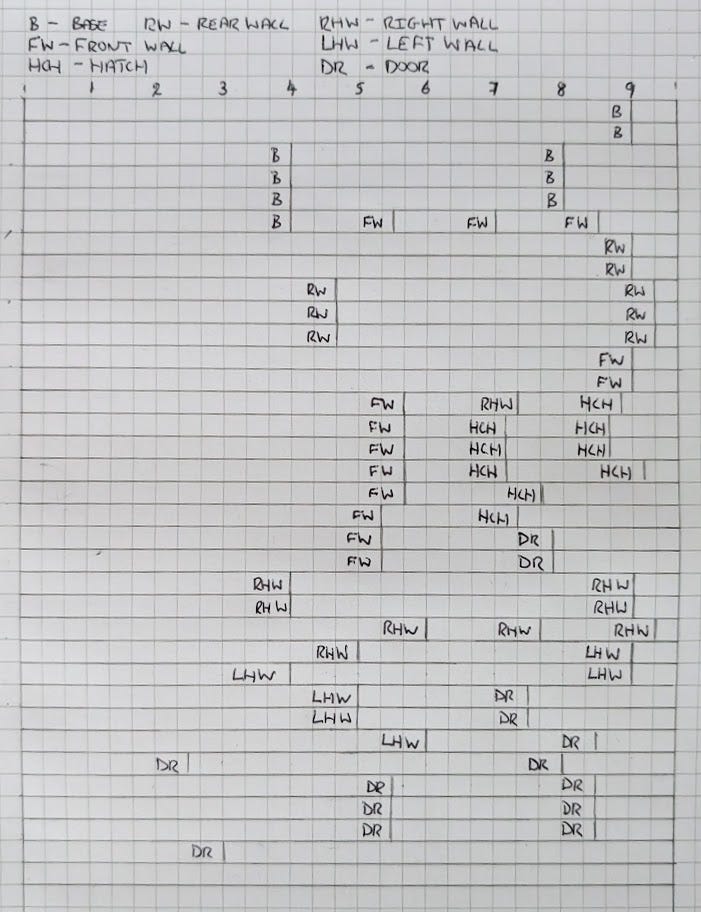 B - BASE RW - REAR WALL RHW - RIGHT WALL
FW - FRONT WALL LHW - LEFT WALL
HCH - HATCH DR - DOOR
1 2 3 4 5 6 7 8 9
B
B
B B
B B
B B
B FW FW FW
RW
RW
RW RW
RW RW
RW RW
FW
FW
FW RHW HCH
FW HCH HCH
FW HCH HCH
FW HCH HCH
FW HCH
FW HCH
FW DR
FW DR
RHW RHW
RHW RHW
RHW RHW RHW
RHW LHW
LHW LHW
LHW DR
LHW DR
LHW DR
DR DR
DR DR
DR DR
DR DR
DR